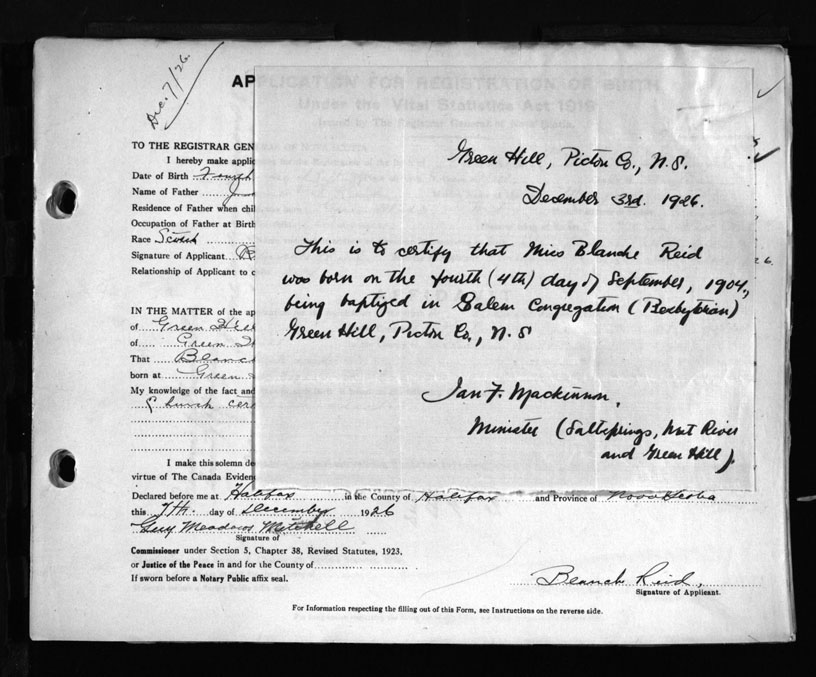 Dec. 7/26.
APPLICATION FOR REGISTRATION OF BIRTH
Under the Vital Statistics Act 1919
Issued by The Registrar General of Nova Scotia.
TO THE REGISTRAR GEN
I hereby make applic
Date of Birth Fourth
Name of Father
Residence of Father when chil
Occupation of Father at Birth
Race Scotch
Signature of Applicant
Relationship of Applicant to c
IN THE MATTER of the ap
of Green Hill
of Green
That Blanc
born at Green
My knowledge of the fact and
Church cer
I make this solemn de
virtue of The Canada Eviden
Green Hill, Pictou Co., N.S.
December 3rd. 1926.
This is to certify that Miss Blanche Reid
was born on the fourth (4th) day of September, 1904,
being baptized in Salem Congregation (Presbyterian)
Green Hill, Pictou Co., N.S
Ian F. Mackinnon,
Minister (Saltsprings, West River
and Green Hill).
Declared before me at Halifax in the County of Halifax and Province of Nova Scotia
this 7th. day of December 1926
Guy Meadows Mitchell
Signature of
Commissioner under Section 5, Chapter 38, Revised Statutes, 1923.
or Justice of the Peace in and for the County of
If sworn before a Notary Public affix seal.
Blanche Reid,
Signature of Applicant.
For Information respecting the filling out of this Form, see Instructions on the reverse side.